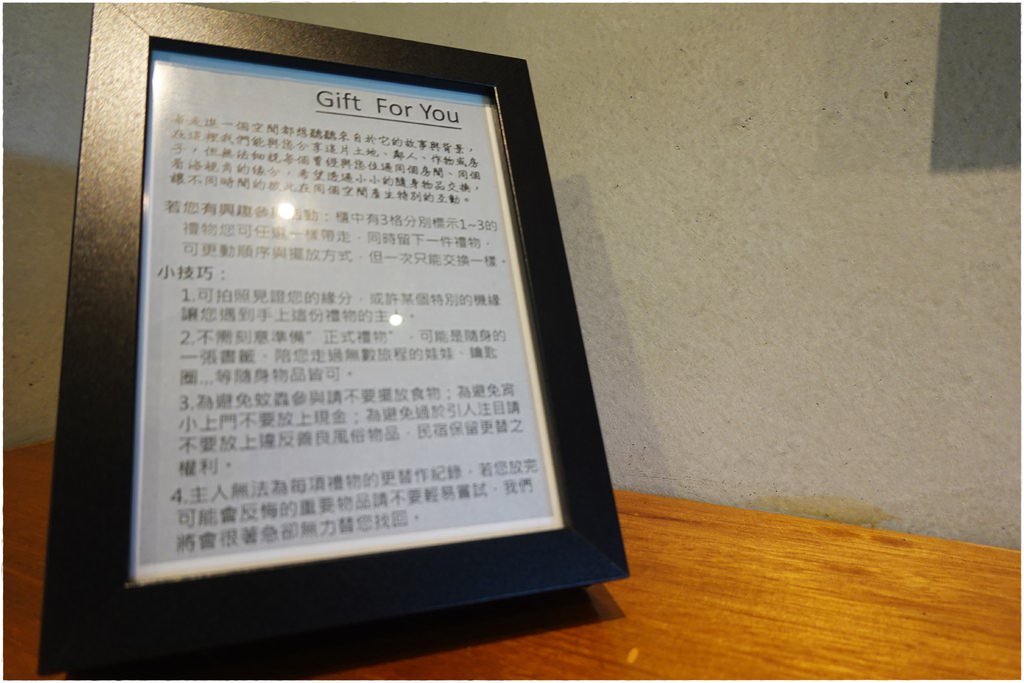 Gift For You
每走進一個空間都想聽聽來自於它的故事與背景,
在這裡我們能與您分享這片土地、鄰人、作物或房
子,但無法細說每個曾經與您住過同個房間、同個
看海視角的緣分,希望透過小小的隨身物品交換,
讓不同時間的彼此在同個空間產生特別的互動。
若您有興趣參與活動:櫃中有3格分別標示1~3的
禮物您可任選一樣帶走,同時留下一件禮物,
可更動順序與擺放方式,但一次只能交換一樣。
小技巧:
1.可拍照見證您的緣分,或許某個特別的機緣
讓您遇到手上這份禮物的主。
2.不需刻意準備"正式禮物",可能是隨身的
一張書籤、陪您走過無數旅程的娃娃、鑰匙
圈...等隨身物品皆可。
3.為避免蚊蟲參與請不要擺放食物;為避免宵
小上門不要放上現金;為避免過於引人注目請
不要放上違反善良風俗物品,民宿保留更替之
權利。
4.主人無法為每項禮物的更替作紀錄,若您放完
可能會反悔的重要物品請不要輕易嘗試,我們
將會很著急卻無力替您找回。